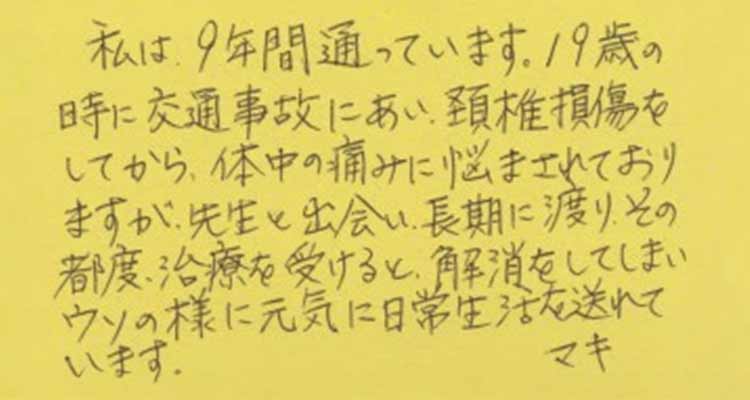 私は、9年間通っています。19歳の
時に交通事故にあい、頚椎損傷を
してから、体中の痛みに悩まされており
ますが、先生と出会い、長期に渡り、その
都度、治療を受けると、解消をしてしまい
ウソの様に元気に日常生活を送れて
います。 マキ